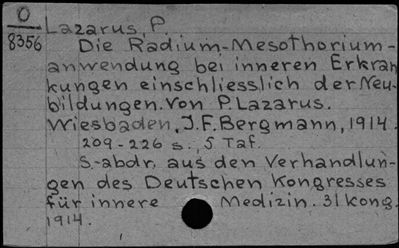 O
8356
Lazarus, P.
Die Radium-Mesothorium-
anwendung bei inneren Erkran
kungen einschliesslich der Neu-
bildungen. Von P. Lazarus.
Wiesbaden, J.F. Bergmann, 1914.
209-226 s., 5 Taf.
S.-abdr. aus den Verhandlun-
gen des Deutschen Kongresses
für innere Medizin. 31 Kong.
1914.